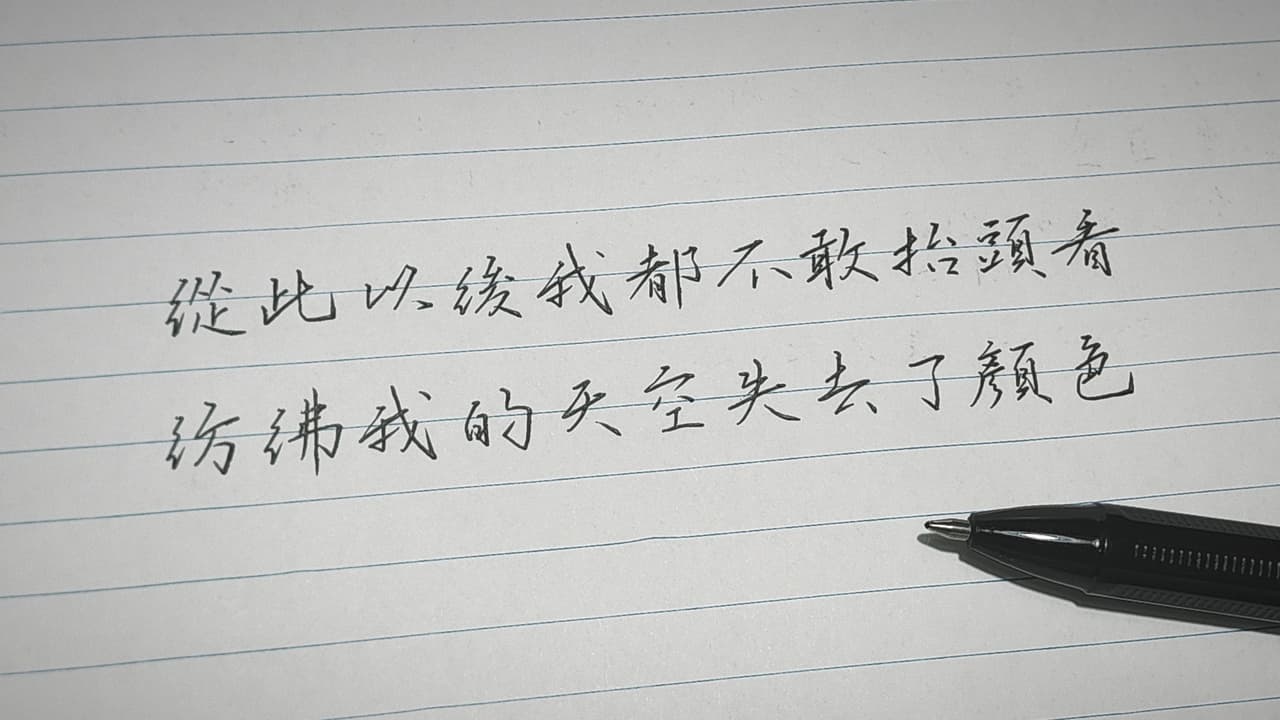 從此以後我都不敢抬頭看
彷彿我的天空失去了顏色